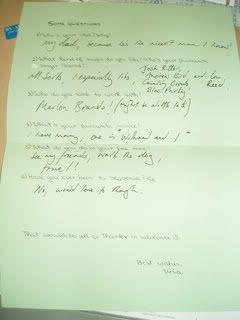 SOME QUESTIONS:
1) Who's your idol? Why?
My dad, because he's the nicest man I know
2) What kind of music do you like? Who's your favourite
singer/band?
Josh Ritter,
All sorts, I especially like, Andrew Bird, and Lou
Counting Crows, Reed.
Bloc Party
3) Who do you wish to work with?
Marlon Brando! (might be a little late)
4) What's your favourite movie?
I have many, one is "Withnail and I"
5) What do you do in your free time?
See my friends, walk the dog,
6) Have you ever been to Slovenia?
No, would love to though.
That would be all :) Thanks in advance :)
Best wishes,